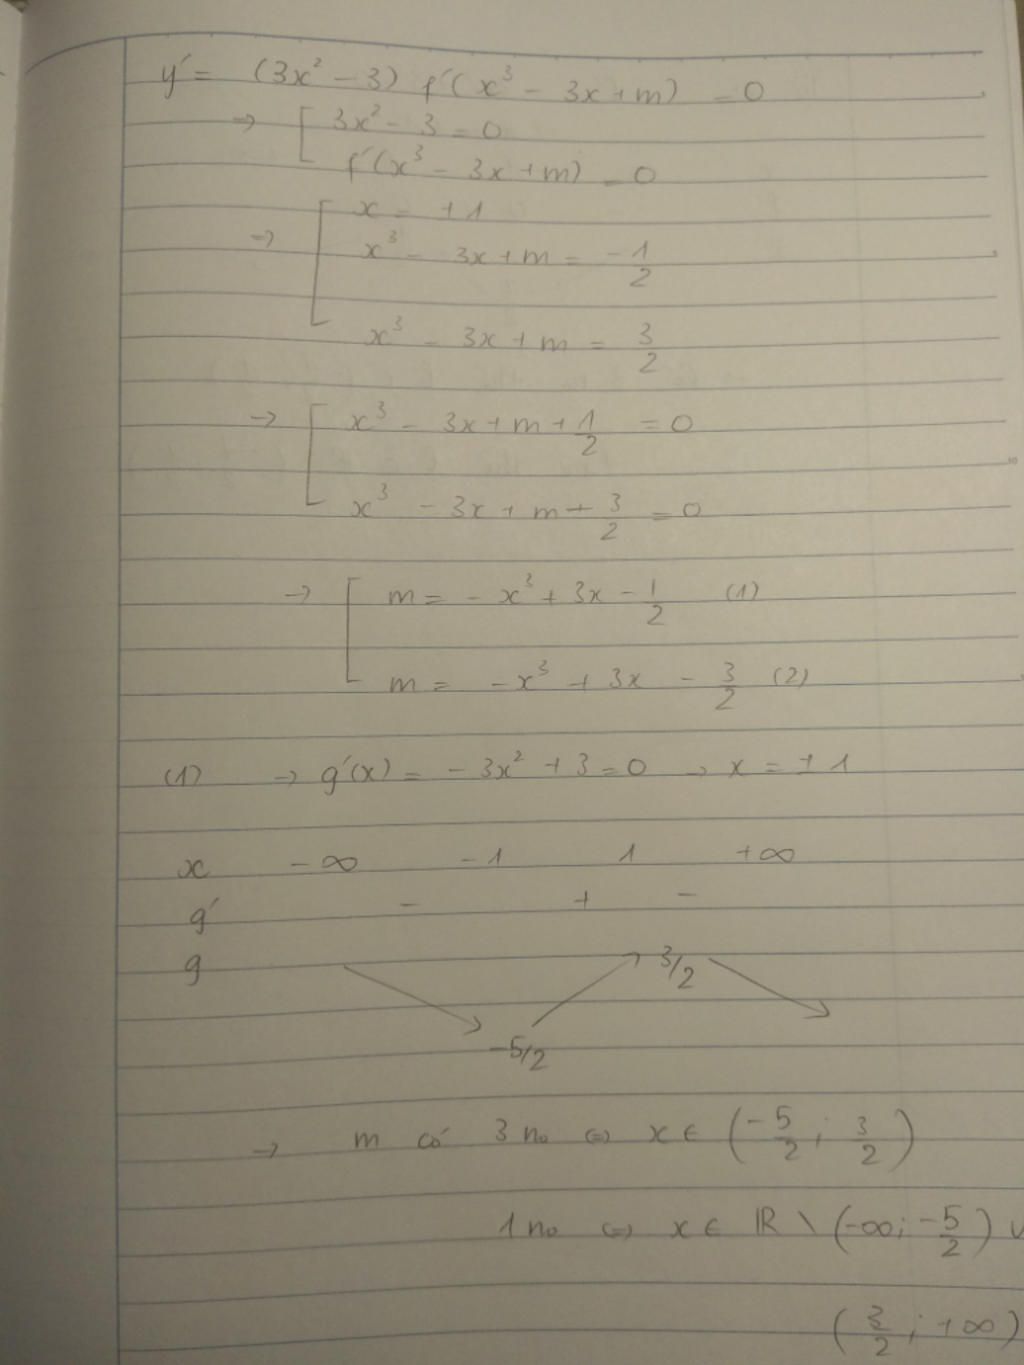 y' = (3x² - 3) f'(x³ - 3x + m) = 0
→ [ 3x² - 3 = 0
f'(x³ - 3x + m) = 0
→ [ x = ±1
x³ - 3x + m = -1/2
x³ - 3x + m = 3/2
→ [ x³ - 3x + m + 1/2 = 0
x³ - 3x + m + 3/2 = 0
→ [ m = -x³ + 3x - 1/2 (1)
m = -x³ + 3x - 3/2 (2)
(1) → g'(x) = -3x² + 3 = 0 → x = ±1
x -∞ -1 1 +∞
g' - + -
g 3/2
-5/2
→ m có 3 no ⇔ x ∈ (-5/2 ; 3/2)
1 no ⇔ x ∈ ℝ \ (-∞; -5/2) ∪
(3/2 ; +∞)